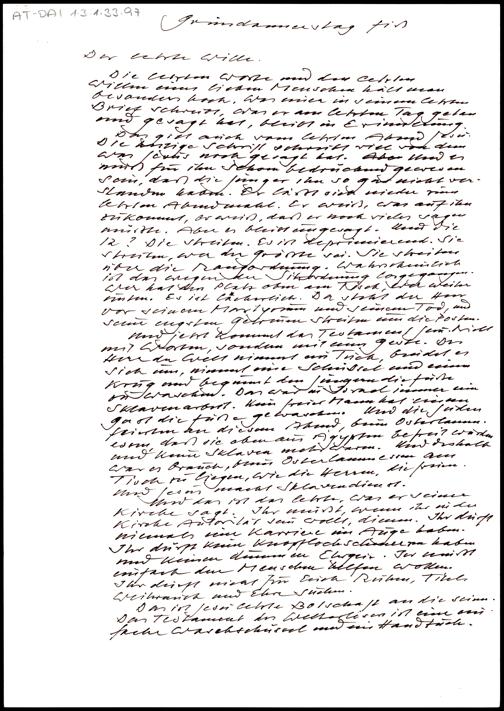 AT-DAI 13.1.33.97
Gründonnerstag
Der letzte Wille.
Die letzten Worte und den letzten
Willen eines lieben Menschen hält man
besonders hoch. Was einer in seinem letzten
Brief schreibt, was er am letzten Tag getan
und gesagt hat, bleibt in Erinnerung.
Das gilt auch vom letzten Abend Jesu.
Die heilige Schrift schreibt viel von dem
was Jesus noch gesagt hat. Aber und es
muß für ihn schon bedrückend gewesen
sein, daß die Jünger ihn so gar nicht ver-
standen haben. Er läßt sich nieder zum
letzten Abendmahl. Er weiß, was auf ihn
zukommt, er weiß, daß er noch vieles sagen
müßte. Aber es bleibt ungesagt. Und die
12? Die streiten. Es ist deprimierend. Sie
streiten, wer der Größte sei. Sie streiten
über die Rangordnung. Wahrscheinlich
ist das wegen der Sitzordnung losgegangen.
Wer hat den Platz oben am Tisch, wer weiter
unten. Es ist lächerlich. Da steht der Herr
vor seinem Martyrium und seinem Tod, und
seine engsten Getreuen streiten um die Posten.
Und jetzt kommt das Testament Jesu. Nicht
mit Worten, sondern mit einer Geste. Der
Herr der Welt nimmt ein Tuch, bindet es
sich um, nimmt eine Schüssel und einen
Krug und beginnt den Jüngern die Füße
zu waschen. Das war in Israel immer eine
Sklavenarbeit. Kein freier Mann hat einem
Gast die Füße gewaschen. Und die Juden
feierten an diesem Abend, beim Osterlamm-
essen, daß sie eben aus Ägypten befreit wurden
und keine Sklaven mehr waren. Und deshalb
war es Brauch, beim Osterlammessen am
Tisch zu liegen, wie die Herren, die freien.
Und Jesus macht Sklavendienst.
Und das ist das letzte, was er seiner
Kirche sagt. Ihr müßt, wenn ihr in der
Kirche Autorität sein wollt, dienen. Ihr dürft
niemals eine Karriere im Auge haben.
Ihr dürft keine Knopflochschmerzen haben
und keinen dummen Ehrgeiz. Ihr müßt
einfach den Menschen helfen wollen.
Ihr dürft nicht für Euch Ruhm, Titel,
Weihrauch und Ehre suchen.
Das ist Jesu letzte Botschaft an die Seinen.
Das Testament des Welterlösers ist eine ein-
fache Waschschüssel und ein Handtuch.